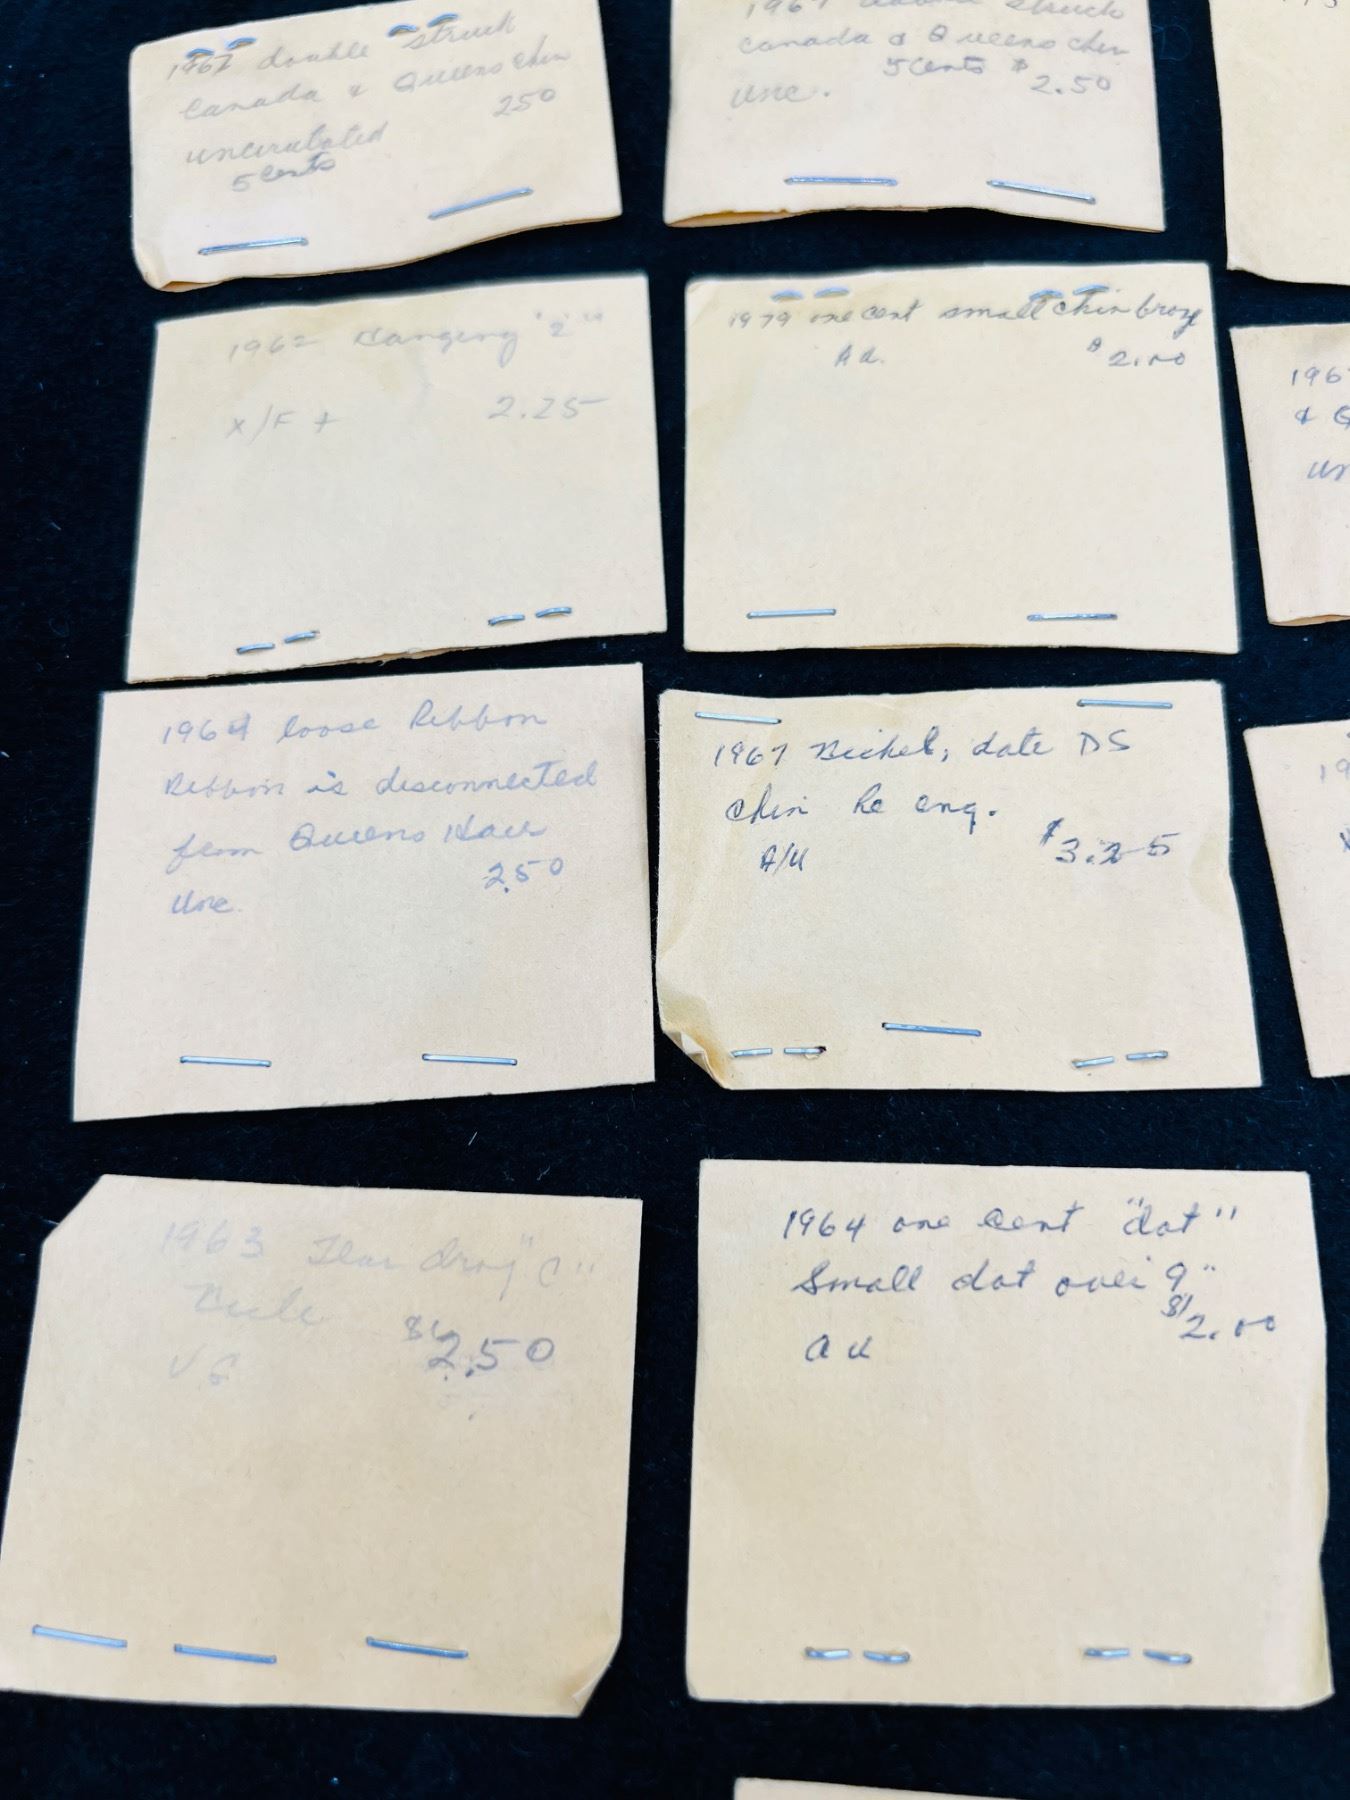 1967 double struck
Canada & Queens chin
250
uncirculated
5 cents
1967 double struck
Canada & Queens chin
5 cents $
unc. 2.50
1962 Hanging "2"
X/F + 2.25
1979 one cent small chin bronz
Au. $2.00
1964 loose Ribbon
Ribbon is disconnected
from Queens Hair
2.50
Unc.
1967 Nickel, date DS
chin re eng.
A/U $3.25
1963 Tear drop "C"
$1
2.50
VG
1964 one cent "dot"
Small dot over 9"
$1
2.00
au
196
& Q
un
19